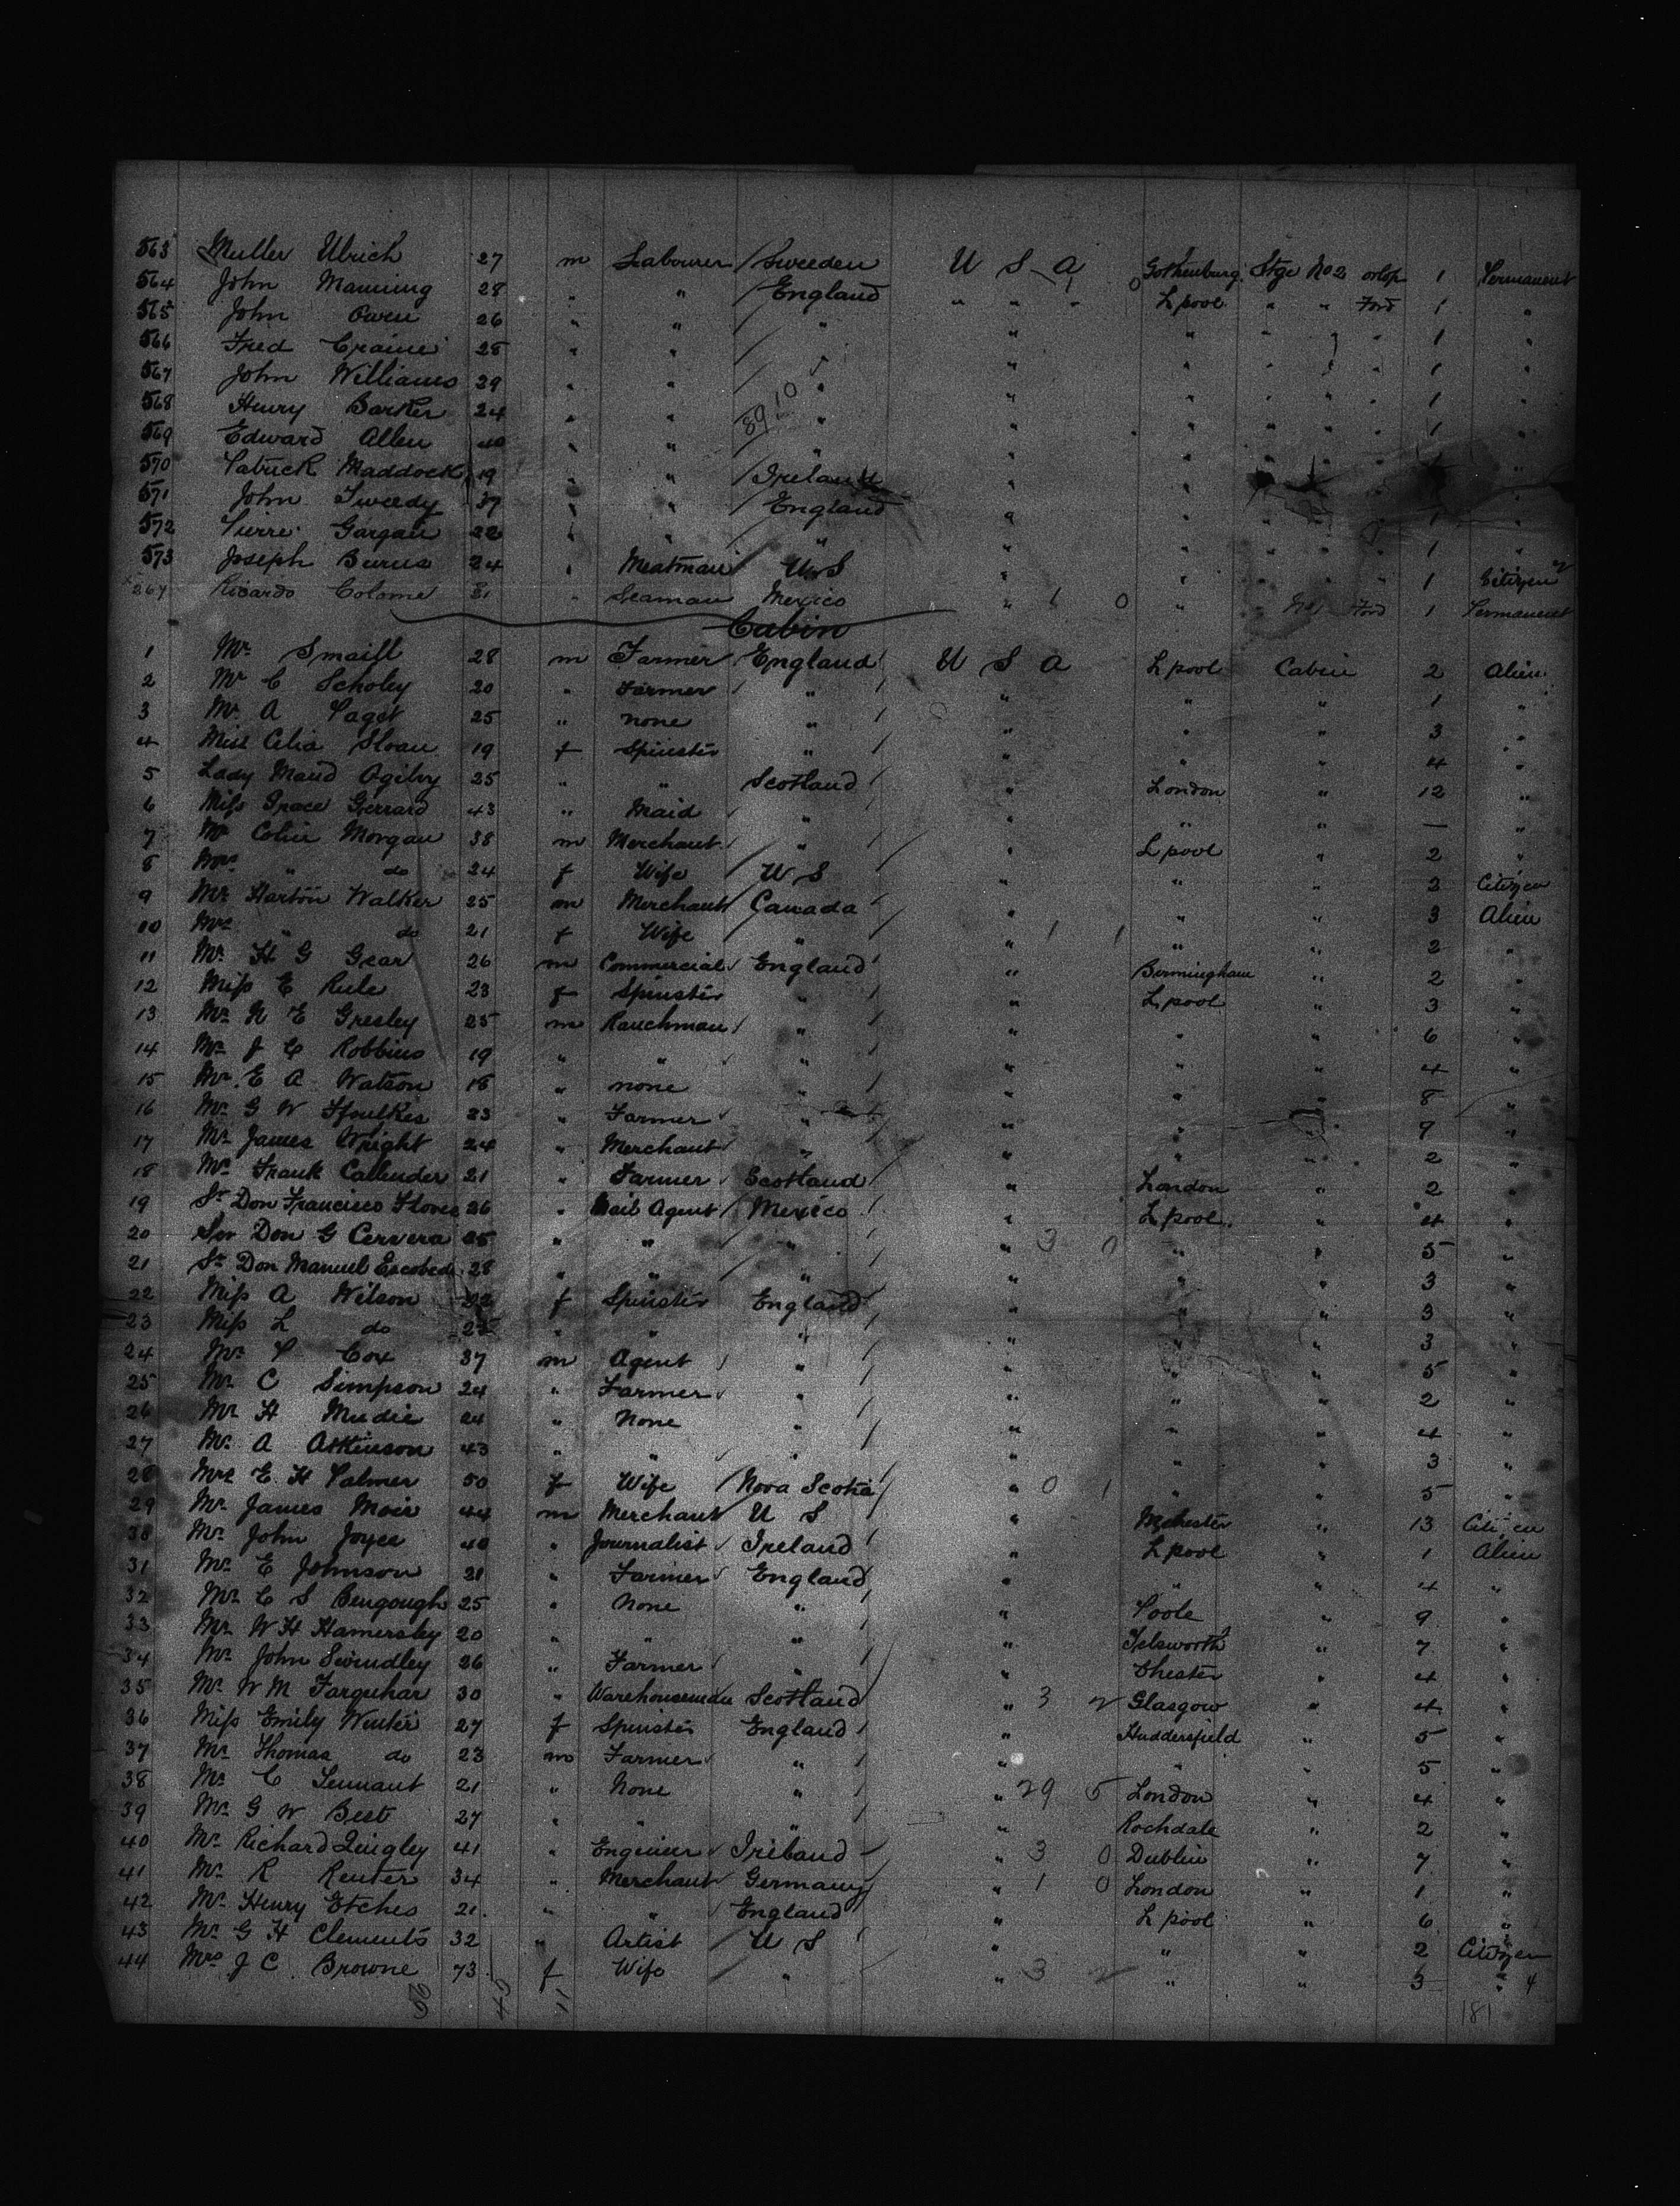 563 Muller Ulrich 27 m Labourer Sweeden U S A Gothenburg Stge No 2 orlop 1 Permanent
564 John Manning 28 " " England " " " L pool " " Ford 1 "
565 John Owen 26 " " " " " " " " 1 "
566 Fred Craine 28 " " " " " " " " 1 "
567 John Williams 29 " " " " " " " " 1 "
568 Henry Barker 24 " " " " " " " " 1 "
569 Edward Allen 40 " " " " " " " "
570 Patrick Maddock 19 " " Ireland " " " "
571 John Tweedy 37 " " England " " " " 1 "
572 Pierre 22 " " " " " " " 1 "
573 Joseph Burns 24 " Meatman U S " " " " 1 Citizen
267 Ricardo Colome 21 " Seaman Mexico " 1 0 " Ford 1 Permanent
Cabin
1 Mr Smaill 28 m Farmer England U S A L pool Cabin 2 Alien
2 Mr C Scholey 20 " Farmer " " " " 1 "
3 Mr A Paget 25 " none " " " " 3 "
4 Miss Celia Sloan 19 f Spinster " " " " 4 "
5 Lady Maud Ogilvy 25 " " Scotland " London " 12 "
6 Miss Grace Gerrard 43 " Maid " " " " — "
7 Mr Colin Morgan 38 m Merchant " " L pool " 2 "
8 Mrs " do 24 f Wife U S " " " 2 Citizen
9 Mr Harton Walker 25 m Merchant Canada " " " 3 Alien
10 Mrs " do 21 f Wife " " 1 1 " " 2 "
11 Mr H G Gear 26 m Commercial England " Birmingham " 2 "
12 Miss E Rule 23 f Spinster " " L pool " 3 "
13 Mr N E Gresley 25 m Ranchman " " " " 6 "
14 Mr J C Robbins 19 " " " " " " 4 "
15 Mr E A Watson 18 " none " " " " 8 "
16 Mr G W Ffoulkes 23 " Farmer " " " " 9 "
17 Mr James Wright 24 " Merchant " " " " 2 "
18 Mr Frank Callender 21 " Farmer Scotland " London " 2 "
19 Sr Don Francisco 26 " Mail Agent Mexico " L pool " 4 "
20 Snr Don G Cervera 25 " " " " 3 0 " " 5 "
21 Sr Don Manuel Escobedo 28 " " " " " " 3 "
22 Miss A Wilson 22 f Spinster England " " " 3 "
23 Miss L do " " " " " " 3 "
24 Mr P Cox 37 m Agent " " " " 5 "
25 Mr C Simpson 24 " Farmer " " " " 2 "
26 Mr H Mudie 24 " None " " " " 4 "
27 Mr A Atkinson 43 " " " " " " 3 "
28 Mrs E. H Palmer 50 f Wife Nova Scotia " 0 1 " " 5 "
29 Mr James Moir 44 m Merchant U S " Mchester " 13 Citizen
30 Mr John Joyce 40 " Journalist Ireland " L pool " 1 Alien
31 Mr E Johnson 21 " Farmer England " " " 4 "
32 Mr C S Bengough 25 " None " " Poole " 9 "
33 Mr W H Hamersley 20 " " " " Isleworth " 7 "
34 Mr John Swindley 26 " Farmer " " Chester " 4 "
35 Mr W M Farquhar 30 " Warehouseman Scotland " 3 2 Glasgow " 4 "
36 Miss Emily Winter 27 f Spinster England " Huddersfield " 5 "
37 Mr Thomas do 23 m Farmer " " " " 5 "
38 Mr C Tennant 21 " None " " 29 5 London " 4 "
39 Mr G W Best 27 " " " " Rochdale " 2 "
40 Mr Richard Quigley 41 " Engineer Ireland " 3 0 Dublin " 7 "
41 Mr R Reuter 34 " Merchant Germany " 1 0 London " 1 "
42 Mr Henry Etches 21 " " England " L pool " 6 "
43 Mr G H Clements 32 " Artist U S " " " 2 Citizen
44 Mrs J C Browne 73 f Wife " " 3 2 " " 3 " 4
181